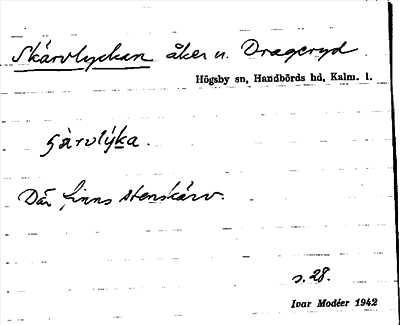 Skärvlyckan åker u. Drageryd
Högsby sn, Handbörds hd, Kalm. l.
Där finns stenskärv.
s. 28.
Ivar Modéer 1942